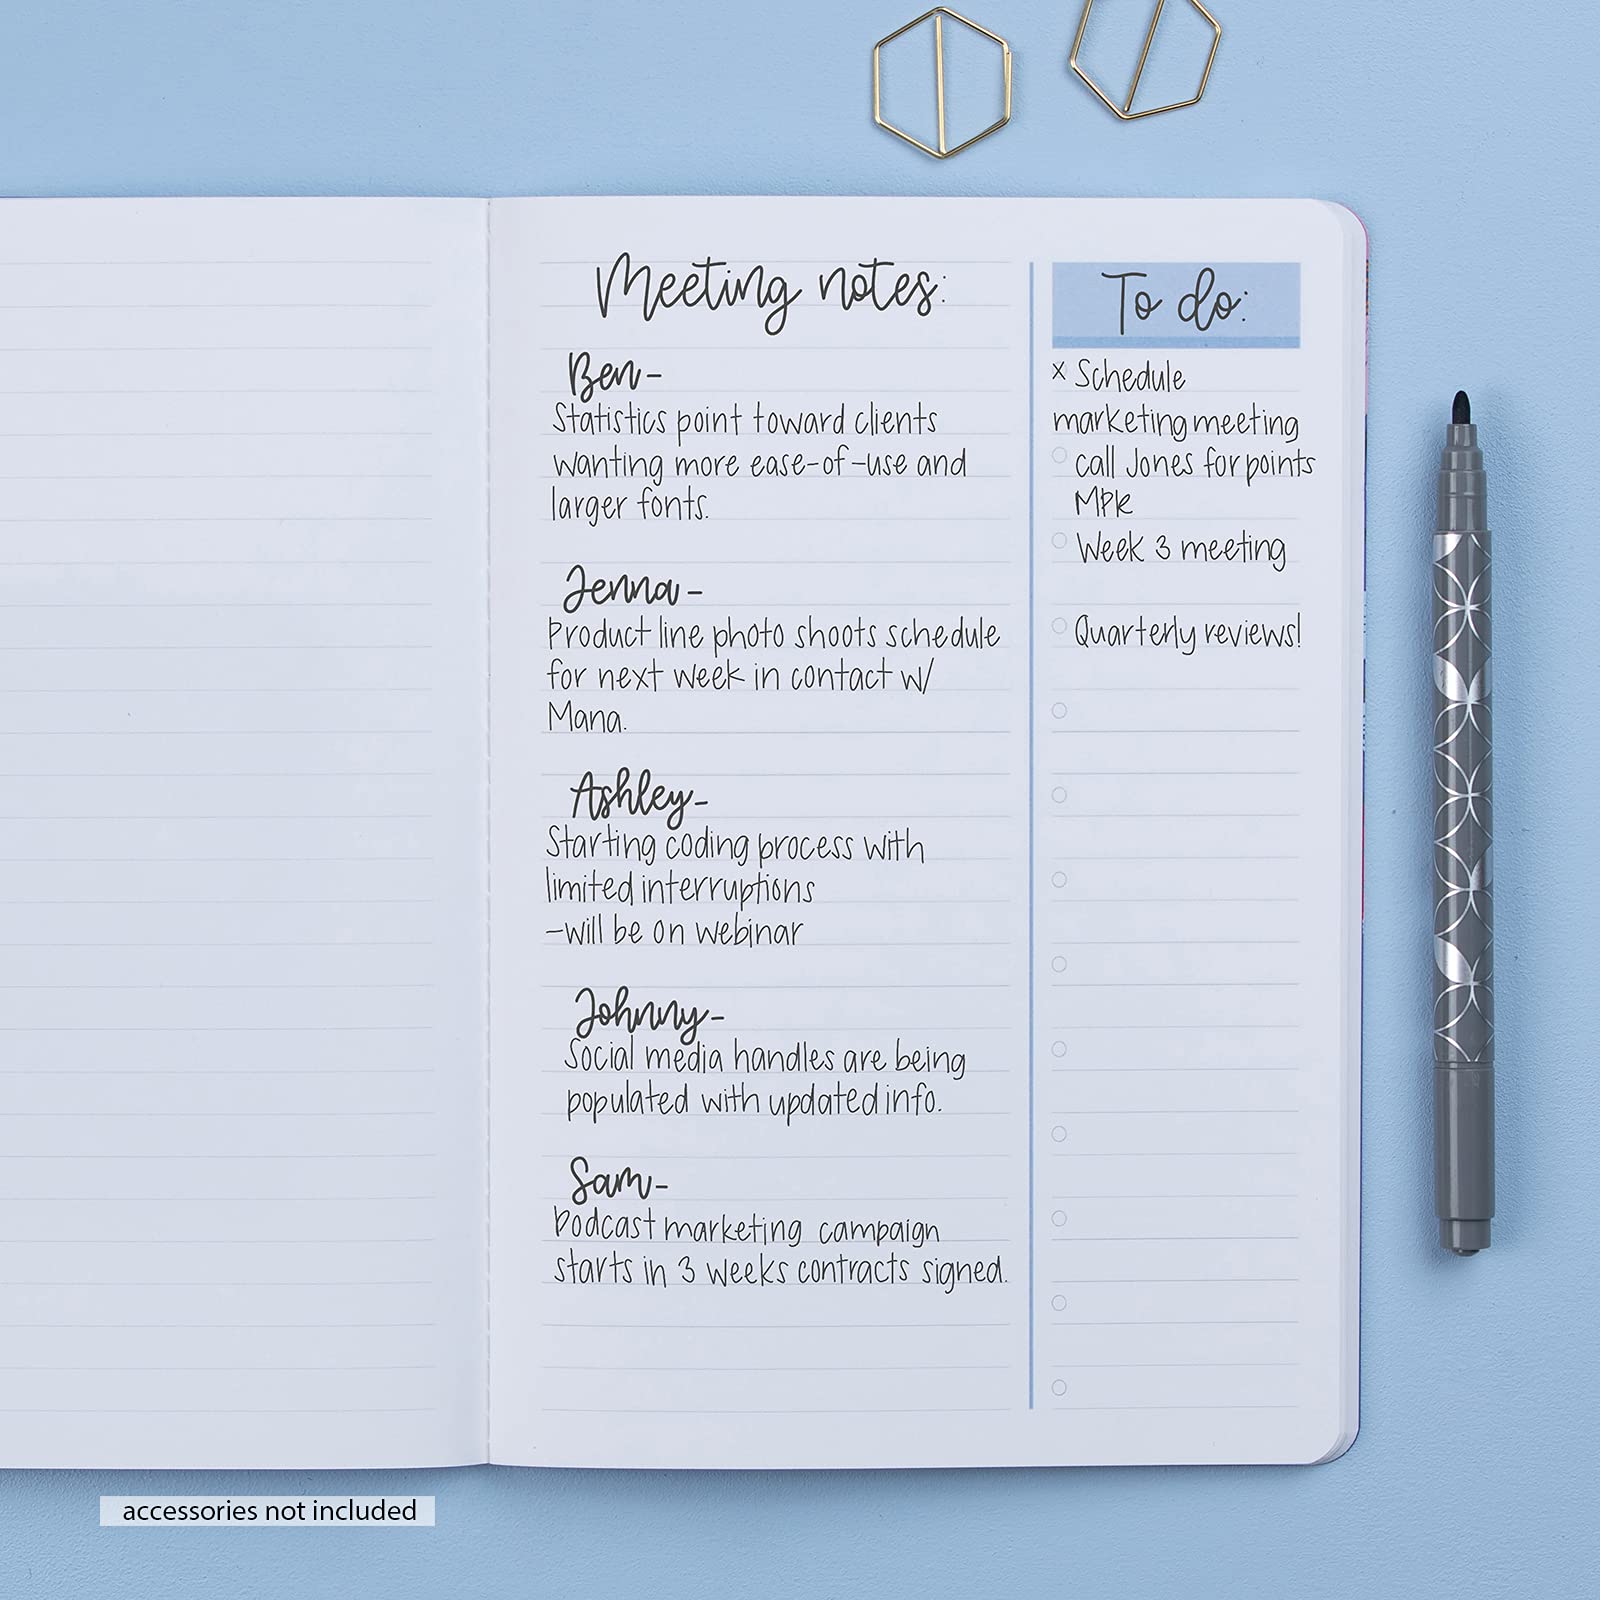 Meeting notes:
Ben-
Statistics point toward clients
wanting more ease-of-use and
larger fonts.
Jenna-
Product line photo shoots schedule
for next week in contact w/
Mana.
Ashley-
Starting coding process with
limited interruptions
-will be on webinar
Johnny-
Social media handles are being
populated with updated info.
Sam-
Podcast marketing campaign
starts in 3 weeks contracts signed.
To do:
x Schedule
marketing meeting
call Jones for points
MPK
Week 3 meeting
Quarterly reviews!
accessories not included